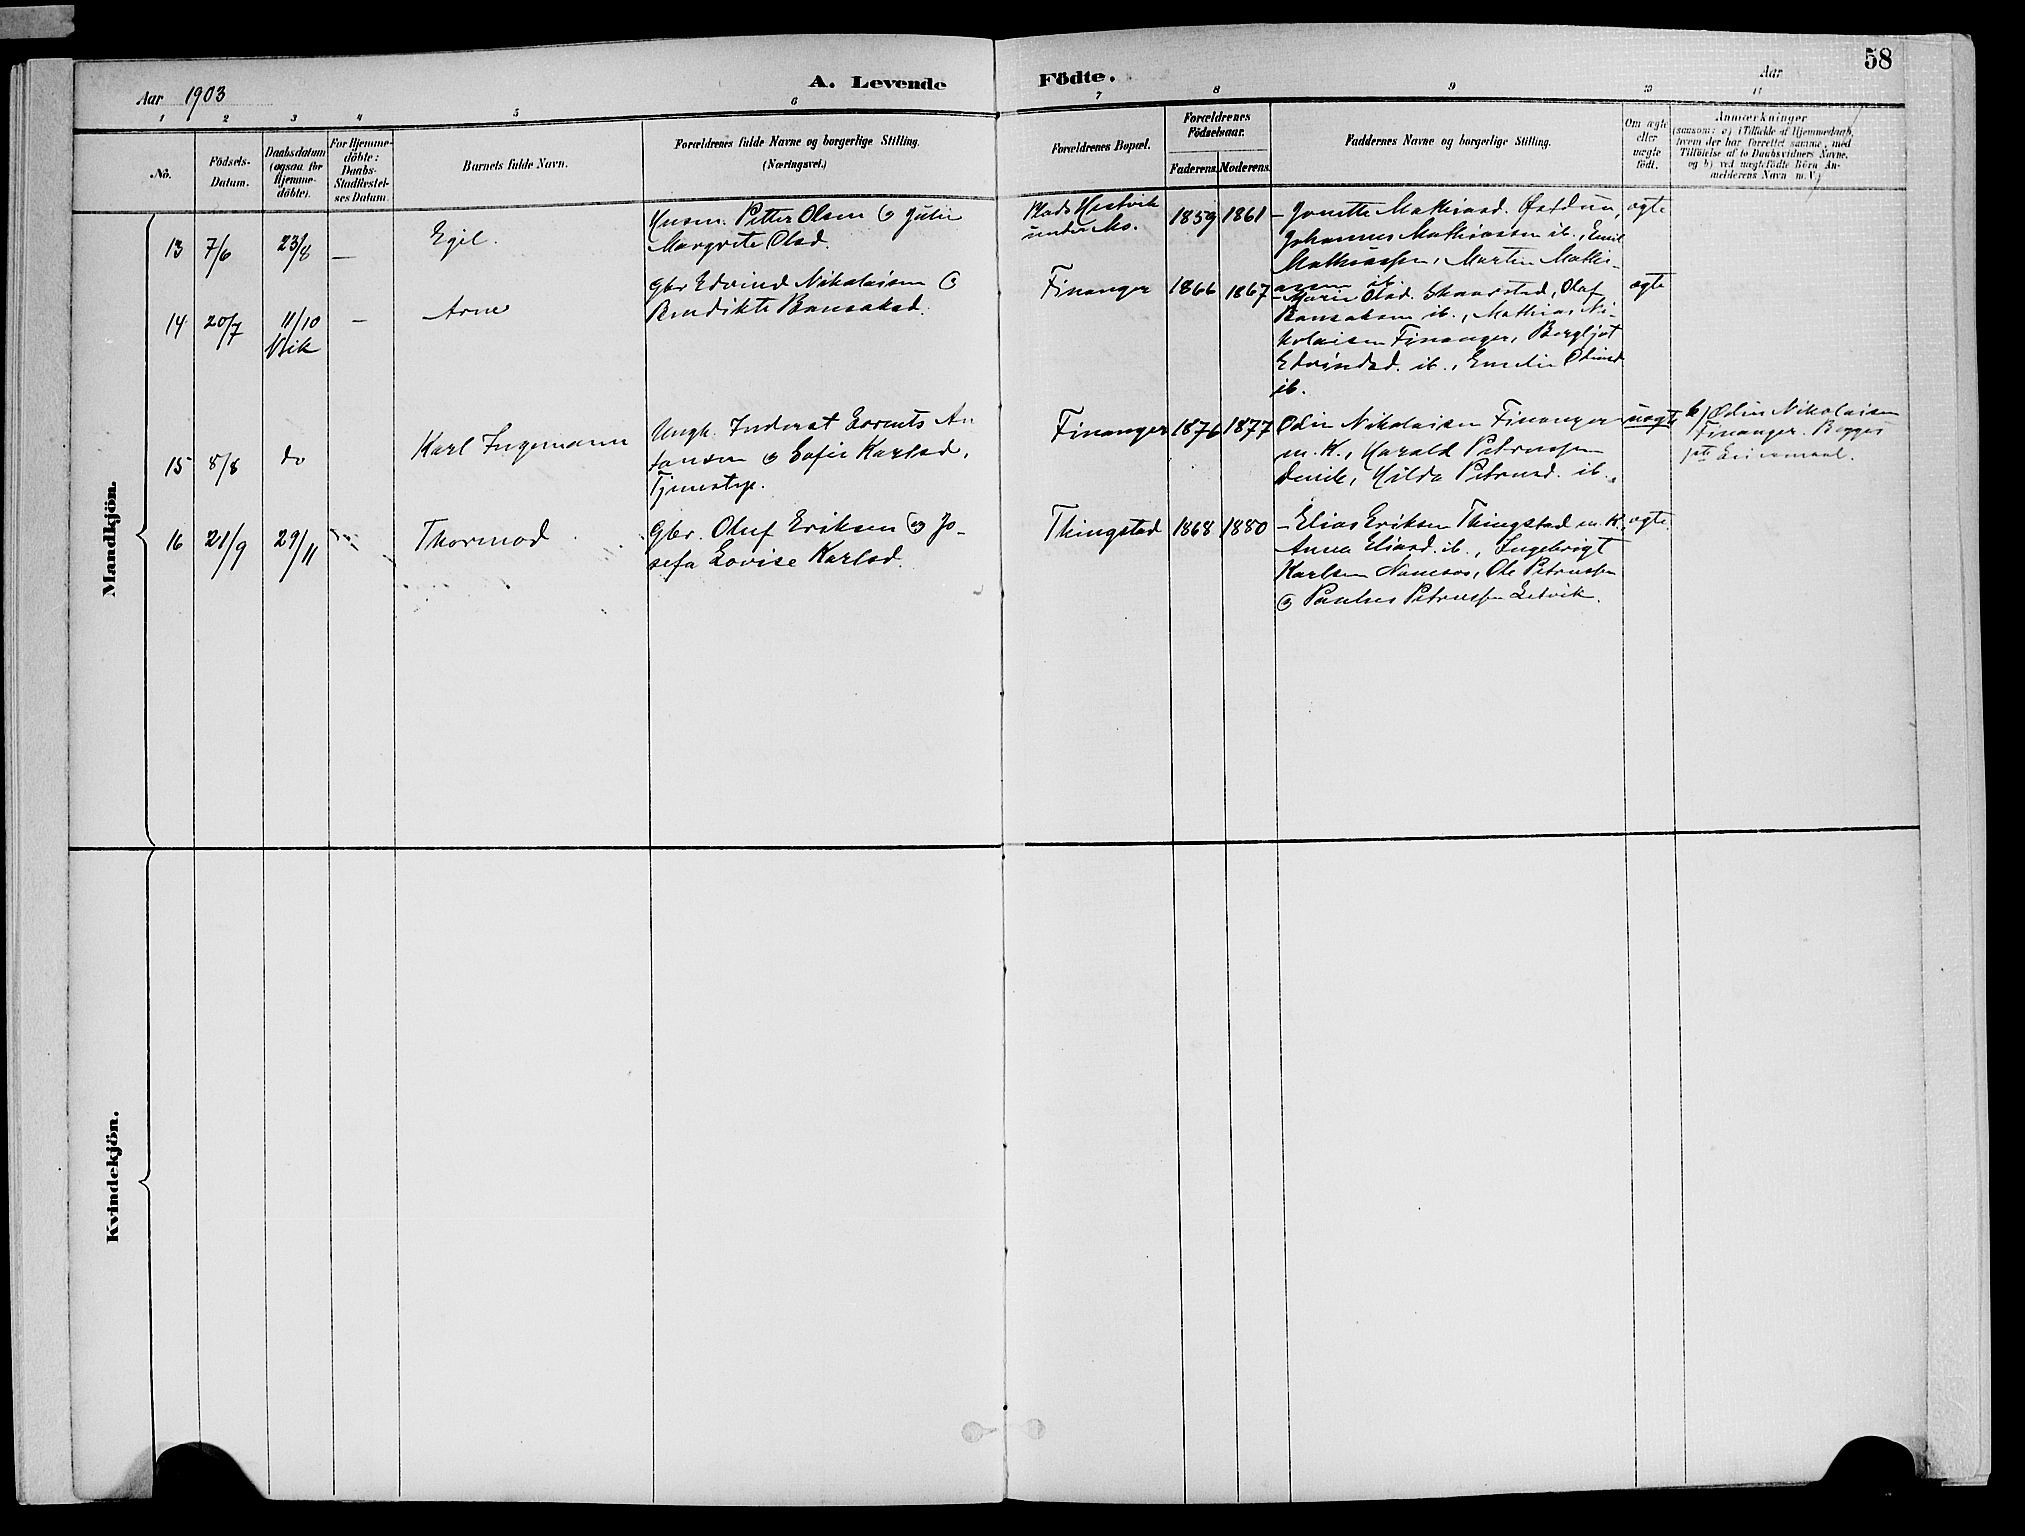 58
A. Levende Födte.
Aar 1903
Aar
1 2 3 4 5 6 7 8 9 10 11
No.
Födsels-Datum.
Daabsdatum (ogsaa for Hjemmedöbte).
For Hjemmedöbte: Daabs-Stadfæstelses Datum.
Barnets fulde Navn.
Forældrenes fulde Navne og borgerlige Stilling.
(Næringsvei.)
Forældrenes Bopæl.
Forældrenes Födselsaar.
Faderens. Moderens.
Faddernes Navne og borgerlige Stilling.
Om ægte eller uægte födt.
Anmærkninger
(saasom: a) i Tilfælde af Hjemmedaab,
hvem der har forrettet samme, med
Tilföielse af to Daabsvidners Navne,
og b) ved uægtefödte Börn An-
melderens Navn m. V.)
Mandkjön.
13 7/6 23/8 — Egil.
Husm. Petter Olsen og Julie
Margrete Olsd.
Hestvik
under Mo.
1859 1861
— Jonette Mathiasd. Østduun,
Johannes Mathiassen ib., Emil
Mathiassen, Martin Mathi-
assen ib.
ægte
14 20/7 11/10 — Arne
Vik
Gbr Edvind Nikolaisen og
Bendikte Bansaksd.
Finanger 1866 1867
— Marie Olsd. Skaarstad, Olaf
Bansaksen ib., Mathias Ni-
kolaisen Finanger, Bergljot
Edvindsd. ib., Emelie
ib.
ægte
15 8/8 do Karl Ingemann
Ungk. Inderat Lorents An
tonsen og Sofie Karlsd.
Finanger 1876 1877
Odin Nikolaisen Finanger
m. K., Harald Petrussen
Hilda Petrusd. ib.
uægte
b) Odin Nikolaisen
Finanger. Begges
1ste Leiermaal.
16 21/9 29/11 Thormod
Gbr. Oluf Eriksen og Jo-
sefa Lovise Karlsd.
Thingstad 1868 1880
— Elias Eriksen Thingstad m. K.
Anna Eliasd. ib., Ingebrigt
Karlsen Namsos, Ole Petrussen
og Paulus Petrussen Setvik.
ægte.
Kvindekjön.